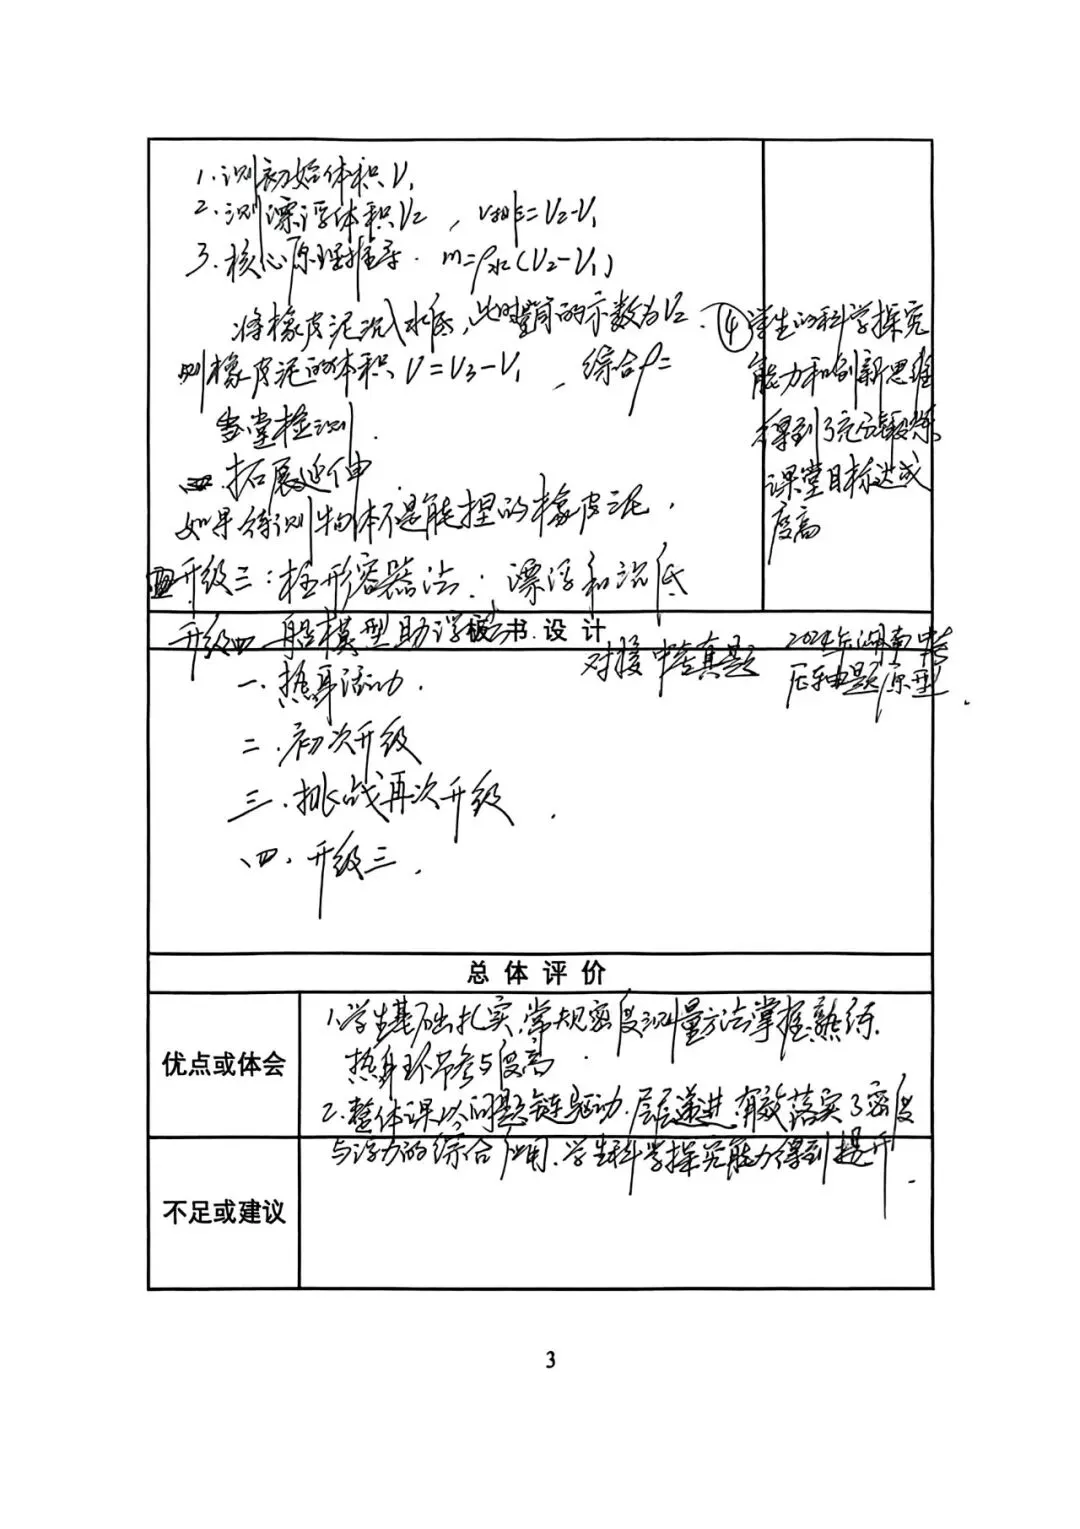 1.测初始体积V₁
2.测漂浮体积V₂，V排=V₂-V₁
3.核心原理推导．m=ρ水(V₂-V₁)
将橡皮泥沉入水底，此时量筒的示数为V₂．
则橡皮泥的体积V=V₃-V₁，综合ρ=
当堂检测．
三．拓展延伸
如果待测物体不是能捏的橡皮泥，
四升级三：柱形容器法：漂浮和沉底
④学生的科学探究
能力和创新思维
得到了充分锻炼
课堂目标达成
度高
板书设计
升级四 船模型助浮法
对接中考真题 2024年湖南中考
压轴题原型．
一．热身活动．
二．初次升级
三．挑战再次升级．
四．升级三．
总体评价
优点或体会
1.学生基础扎实,常规密度测量方法掌握熟练．
热身环节参与度高．
2.整体课以问题链驱动．层层递进．有效落实了密度
与浮力的综合应用．学生科学探究能力得到提升．
不足或建议
3